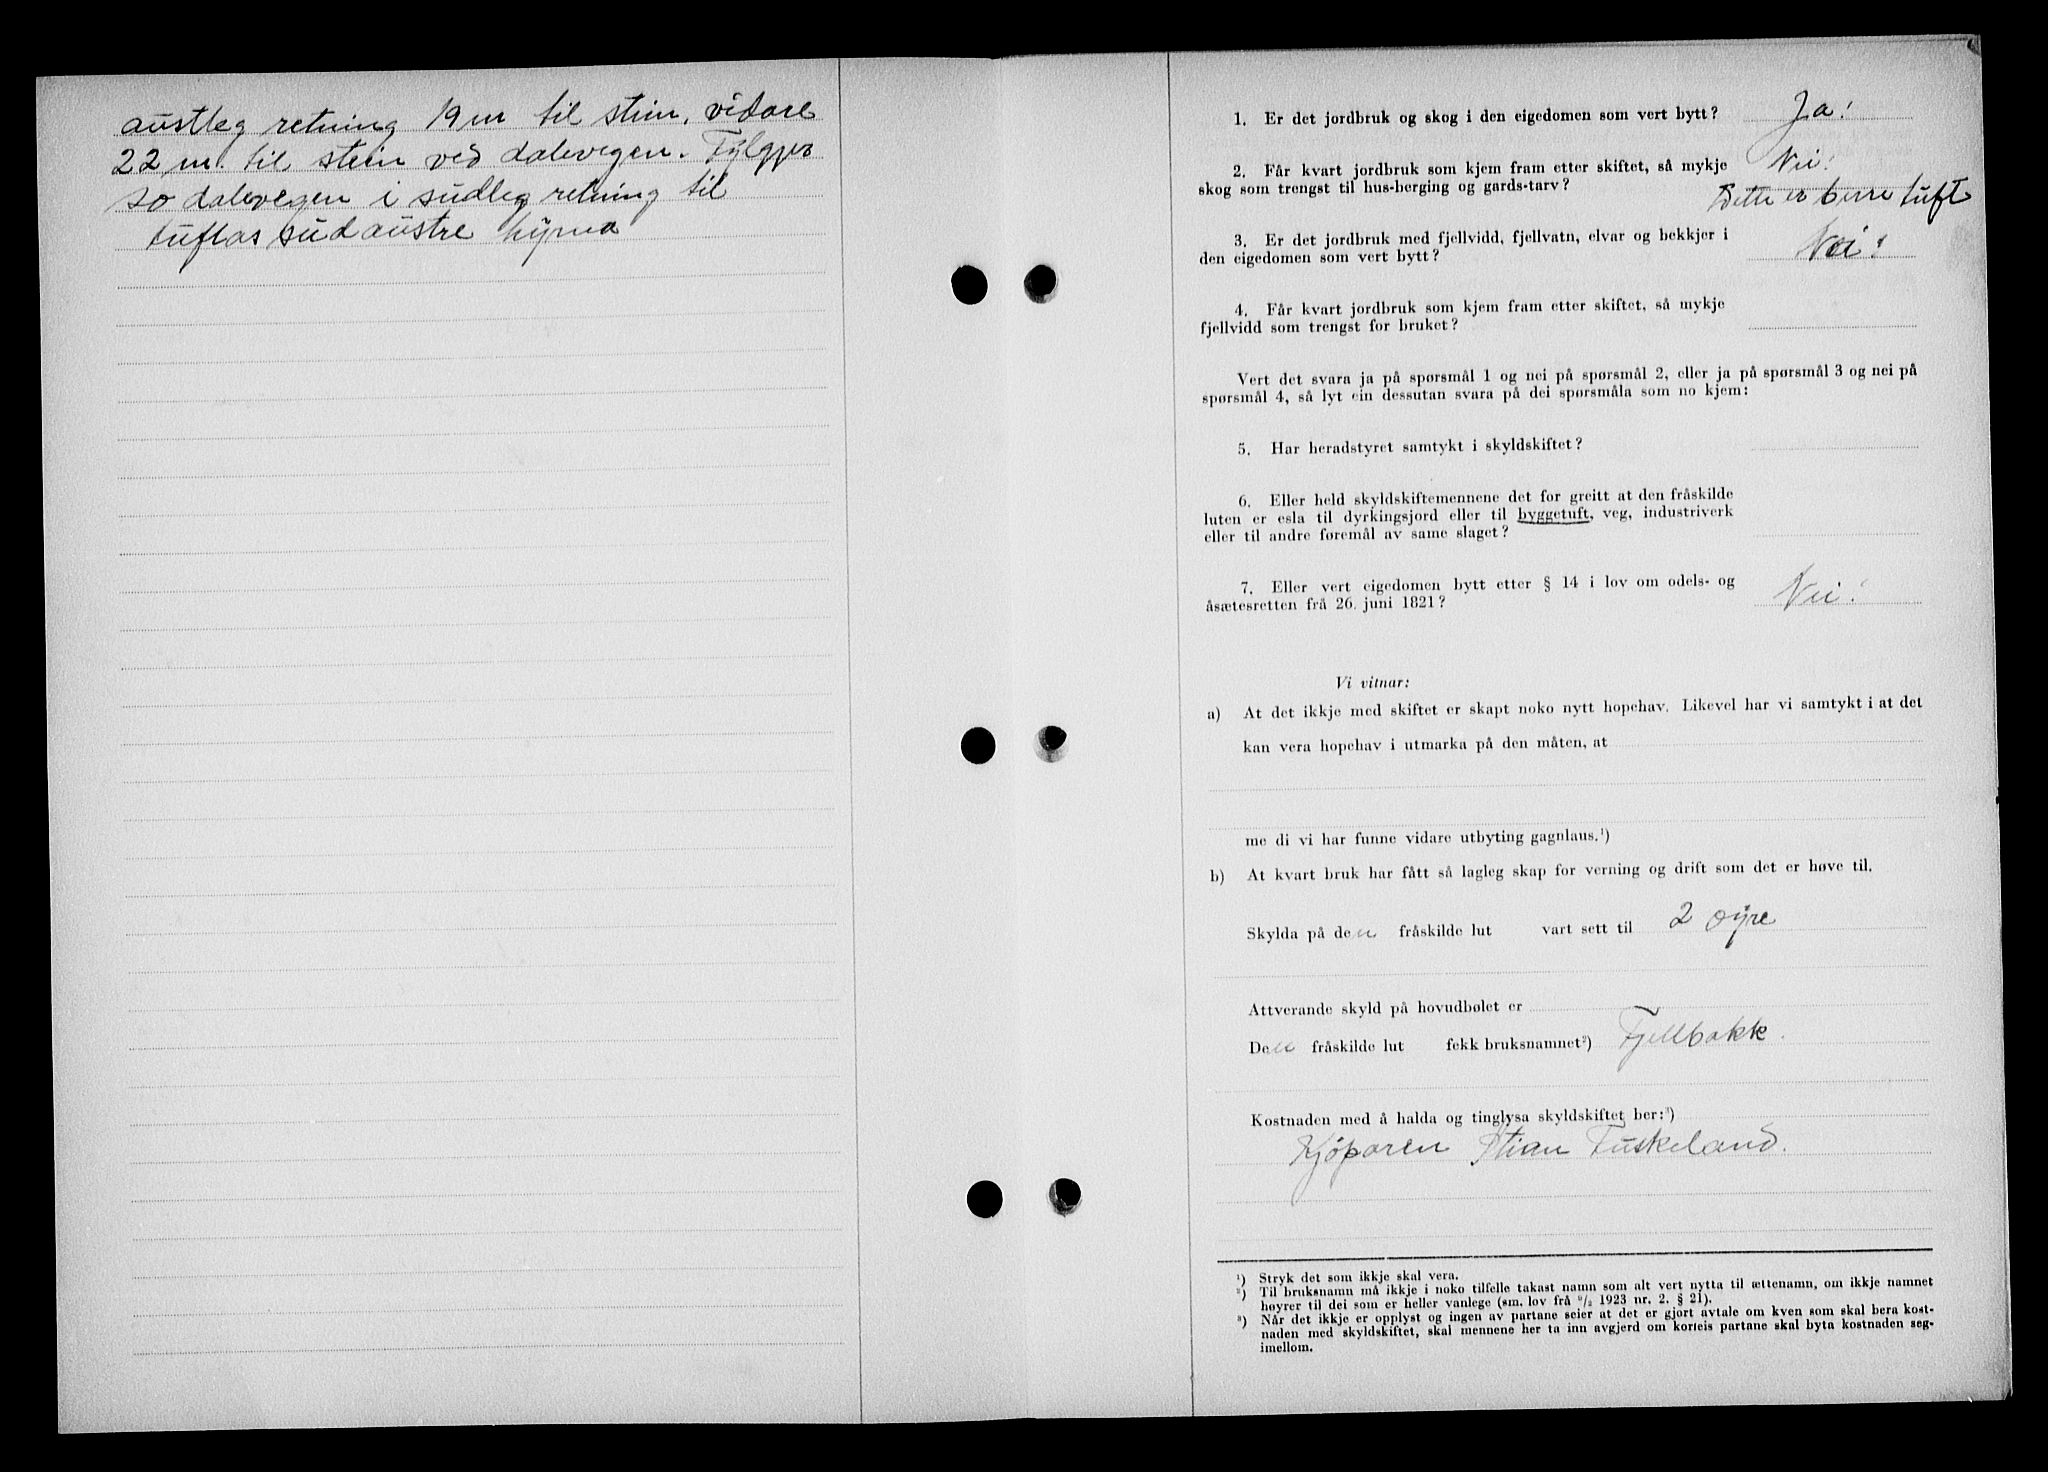 austleg retning 19 m til stein, vidare
22 m. til stein ved dalevegen. Fylgjer
so dalevegen i sudleg retning til
tuftas sudaustre hyrna
1. Er det jordbruk og skog i den eigedomen som vert bytt? Ja!
2. Får kvart jordbruk som kjem fram etter skiftet, så mykje Nei!
skog som trengst til hus-berging og gards-tarv? Dette er berre tuft
3. Er det jordbruk med fjellvidd, fjellvatn, elvar og bekkjer i
den eigedomen som vert bytt? Nei!
4. Får kvart jordbruk som kjem fram etter skiftet, så mykje
fjellvidd som trengst for bruket?
Vert det svara ja på spørsmål 1 og nei på spørsmål 2, eller ja på spørsmål 3 og nei på
spørsmål 4, så lyt ein dessutan svara på dei spørsmåla som no kjem:
5. Har heradstyret samtykt i skyldskiftet?
6. Eller held skyldskiftemennene det for greitt at den fråskilde
luten er esla til dyrkingsjord eller til byggetuft, veg, industriverk
eller til andre føremål av same slaget?
7. Eller vert eigedomen bytt etter § 14 i lov om odels- og
åsætesretten frå 26. juni 1821? Nei!
Vi vitnar:
a) At det ikkje med skiftet er skapt noko nytt hopehav. Likevel har vi samtykt i at det
kan vera hopehav i utmarka på den måten, at
me di vi har funne vidare utbyting gagnlaus.¹)
b) At kvart bruk har fått så lagleg skap for verning og drift som det er høve til.
Skylda på den fråskilde lut vart sett til 2 øyre
Attverande skyld på hovudbølet er
Den fråskilde lut fekk bruksnamnet²) Fjellbakk.
Kostnaden med å halda og tinglysa skyldskiftet ber:³)
Kjøparen Stian Tuskeland.
¹) Stryk det som ikkje skal vera.
²) Til bruksnamn må ikkje i noko tilfelle takast namn som alt vert nytta til ættenamn, om ikkje namnet
høyrer til dei som er heller vanlege (sm. lov frå ⁹/₂ 1923 nr. 2. § 21).
³) Når det ikkje er opplyst og ingen av partane seier at det er gjort avtale om kven som skal bera kost-
naden med skyldskiftet, skal mennene her ta inn avgjerd om korleis partane skal byta kostnaden seg-
imellom.